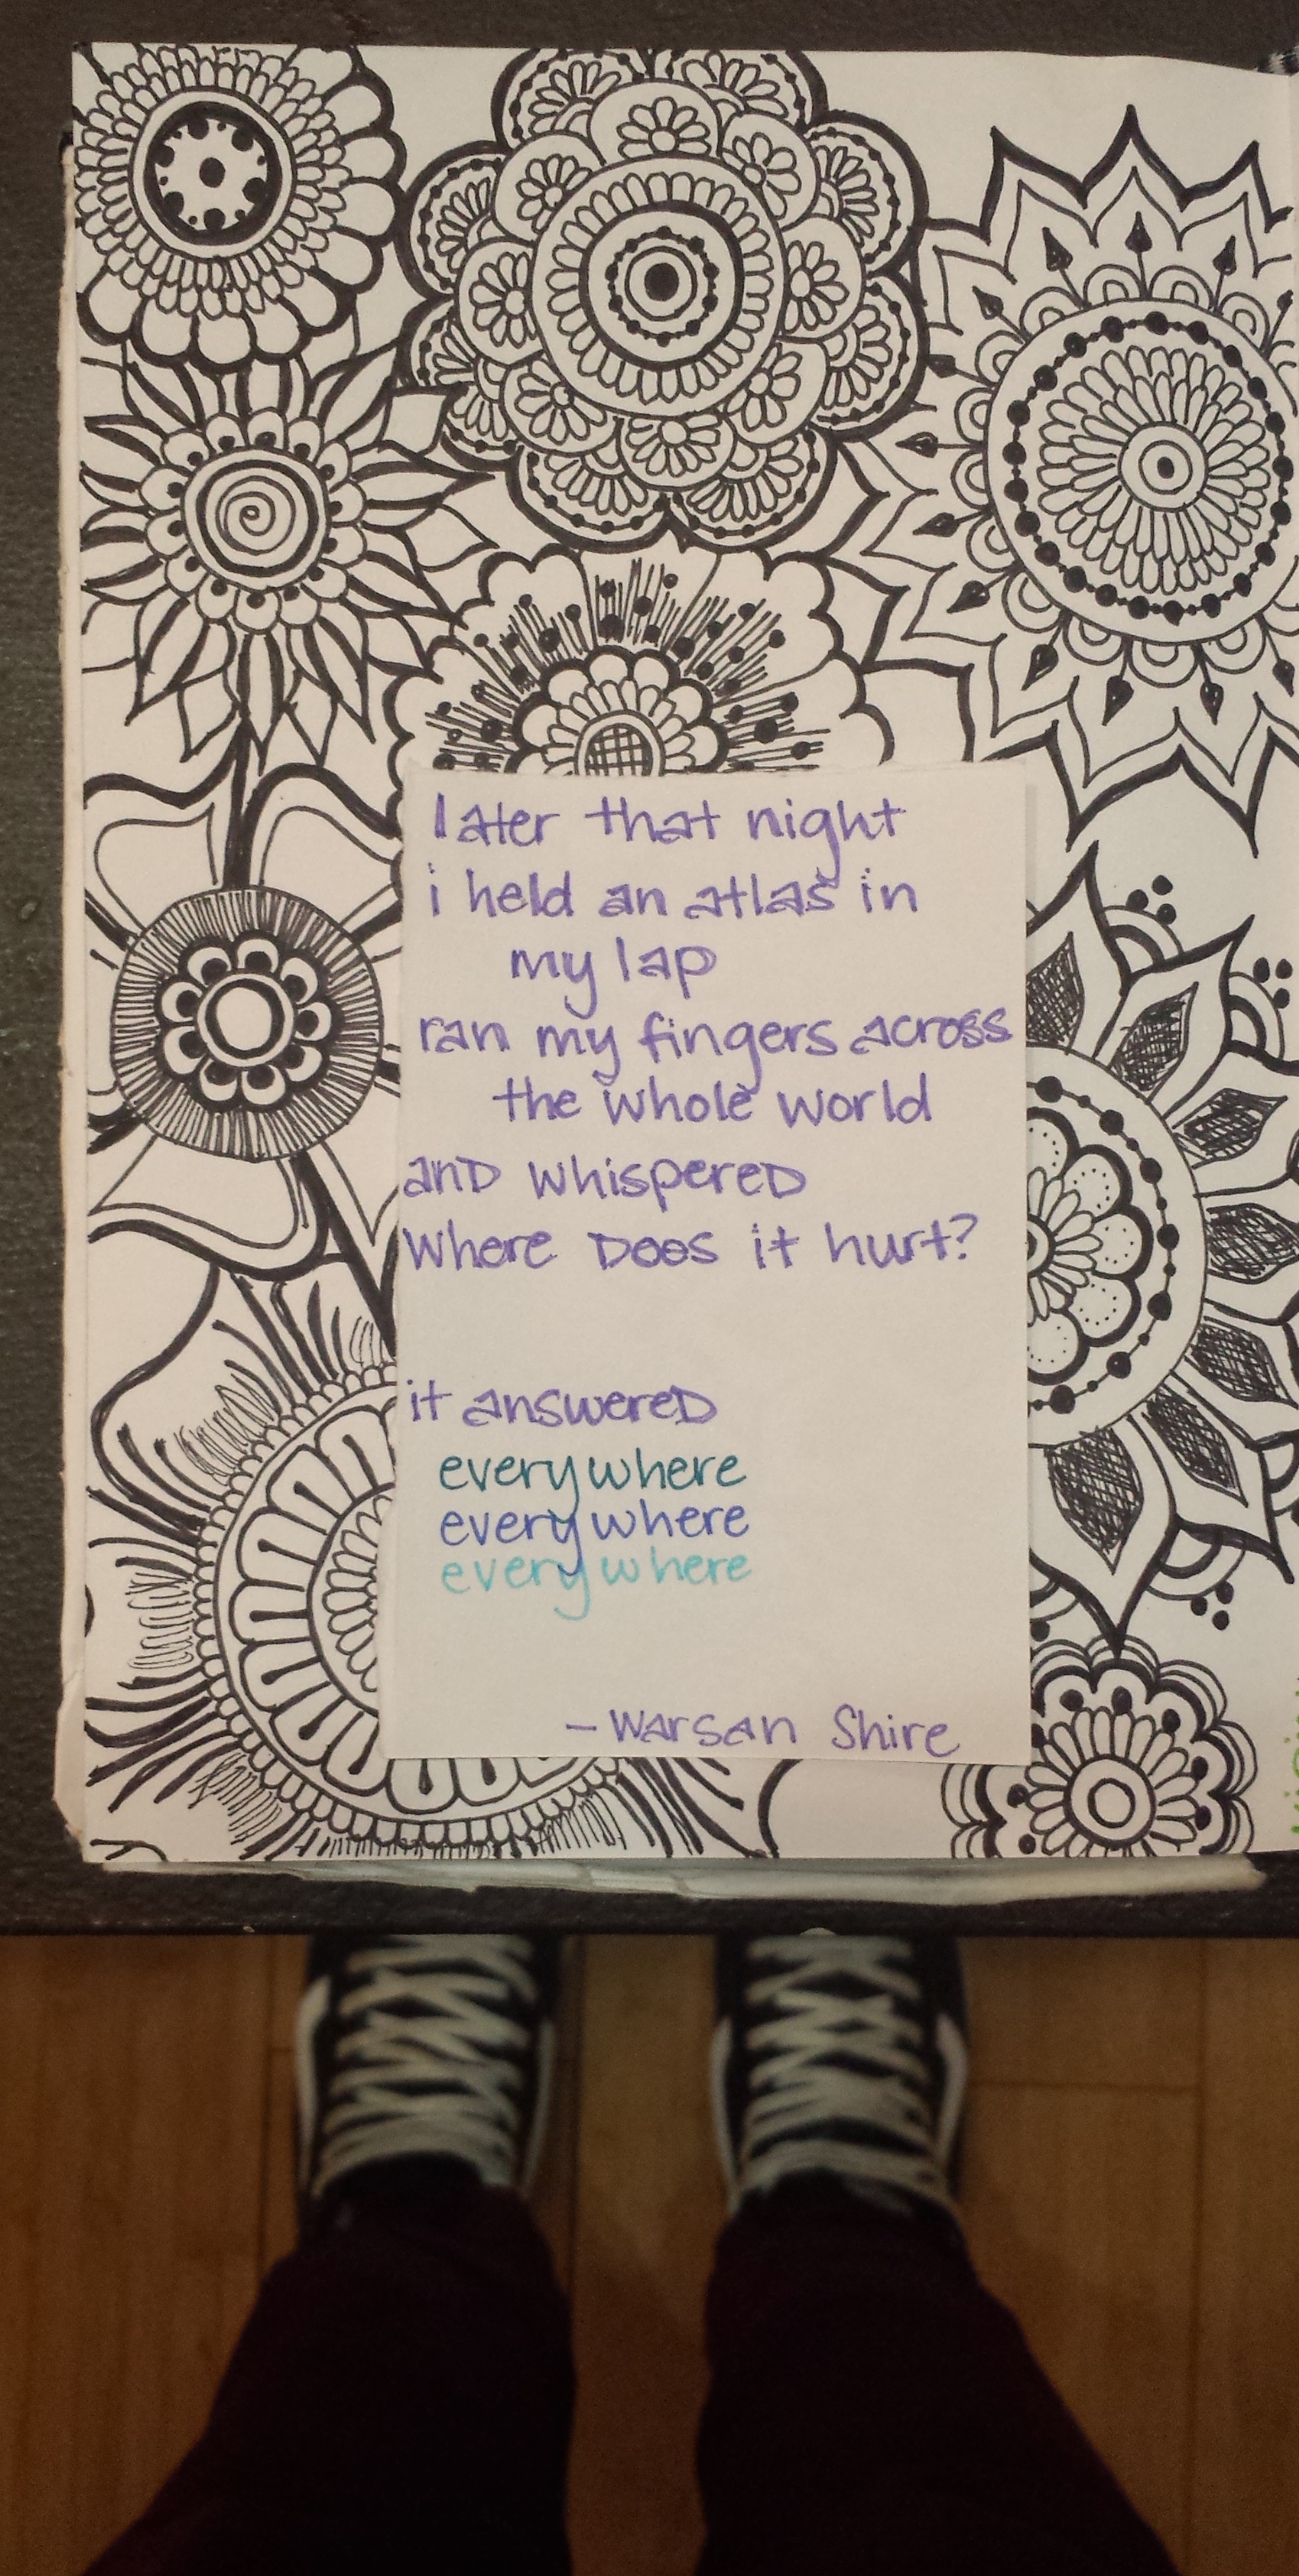 later that night
i held an atlas in
my lap
ran my fingers across
the whole world
and whispered
where does it hurt?
it answered
everywhere
everywhere
everywhere
- Warsan Shire